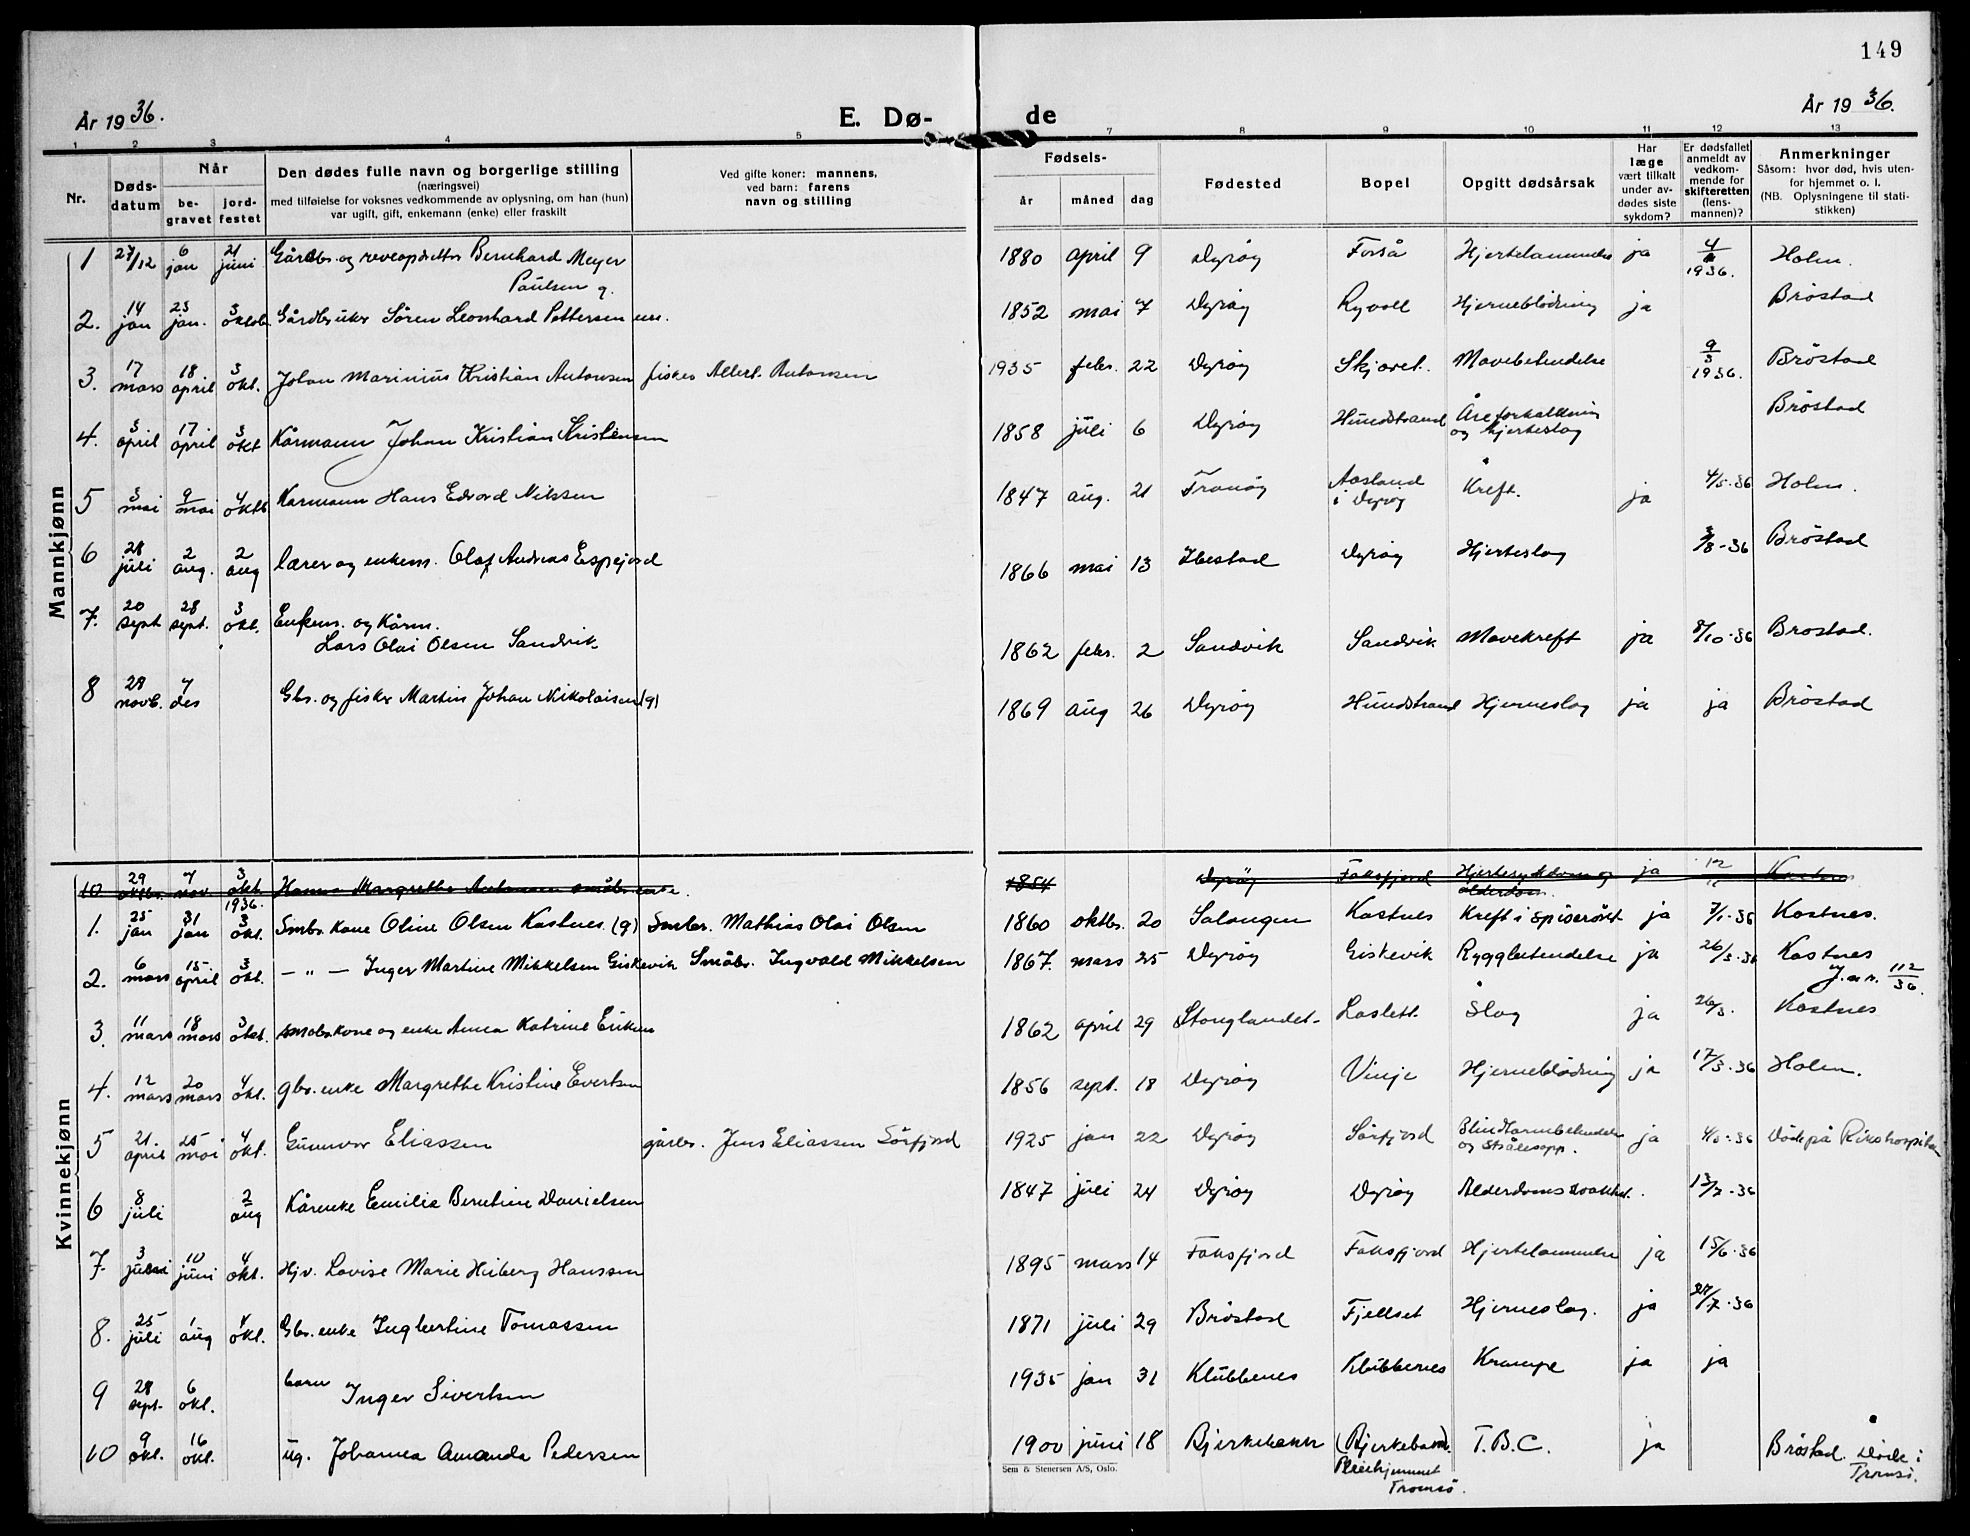 149
År 1936.
E. Dø-
de
År 1936.
1 2 3 4 5 7 8 9 10 11 12 13
Nr.
Døds-
datum
Når
be-
gravet
jord-
festet
Den dødes fulle navn og borgerlige stilling
(næringsvei)
med tilføielse for voksnes vedkommende av oplysning, om han (hun)
var ugift, gift, enkemann (enke) eller fraskilt
Ved gifte koner: mannens,
ved barn: farens
navn og stilling
Fødsels-
år måned dag
Fødested
Bopel
Opgitt dødsårsak
Har
læge
vært tilkalt
under av-
dødes siste
sykdom?
Er dødsfallet
anmeldt av
vedkom-
mende for
skifteretten
(lens-
mannen)?
Anmerkninger
Såsom: hvor død, hvis uten-
for hjemmet o. l.
(NB. Oplysningene til stati-
stikken)
Mannkjønn
1 27/12 6 jan 21 juni Gårdbr. og reveopdretter Bernhard Meyer
Paulsen g. 1880 april 9 Dyrøy Forså Hjertelammelse ja 4/1 1936. Holm.
2. 14 jan 23 jan. 3 oktob. Gårdbruker Sören Leonhard Pettersen em. 1852 mai 7 Dyrøy Ryvoll Hjerneblödning ja Bröstad
3. 17 mars 18 april 3 okt. Johan Marinius Kristian Antonsen fisker Allert. Antonsen 1935 febr. 22 Dyrøy Skjavet. Mavebetendelse 9/3 1936. Bröstad
4. 3 april 17 april 3 okt Kårmann Johan Kristian Kristensen 1858 juli 6 Dyrøy Hundstrand Åreforkalkning
og hjerteslag Bröstad
5 3 mai 9 mai 4 oktb Karmann Hans Edvard Nilssen 1847 aug. 21 Tranöy Aasland
i Dyrøy Kreft. ja 4/5-36 Holm.
6 28 juli 2 aug. 2 aug lærer og enkem. Olaf Andreas Espejord 1866 mai 13 Ibestad Dyröy Hjerteslag 3/8-36 Bröstad
7. 20 sept 28 sept. 3 okt. Enkem. og Kårm.
Lars Olai Olsen Sandvik 1862 febr. 2 Sandvik Sandvik Mavekreft ja 8/10-36 Brostad.
8 28 novb. 7 des Gbr. og fisker Martin Johan Nikolaisen (g) 1869 aug 26 Dyröy Hundstrand Hjerneslag ja ja Bröstad
Kvinnekjønn
10 29 oktbr. 7 nov. 3 okt. 1936. Hanna Margrethe Antonsen småbr. enke. 1854 Dyröy Faksfjord Hjertesykdom og
alderdom. ja 12/11 Kastnes
1. 25 jan 31 jan 3 okt. Smbr. kone Oline Olsen Kastnes. (g) Smbr. Mathias Olai Olsen 1860 oktbr. 20 Salangen Kastnes Kreft i spiseröret ja 7/1-36 Kastnes.
2. 6 mars 15 april 3 okt. — " — Inger Martine Mikkelsen Giskevik Småbr. Ingvald Mikkelsen 1867. mars 25 Dyröy Giskevik Ryggbetendelse ja 26/3-36 Kastnes
J.nr. 112/36.
3. 11 mars 18 mars 3 oktt. smabr.kone og enke Anna Katrine Eriksen 1862 april 29 Stonglandet Laslett. Slag ja 26/3. Kastnes
4. 12 mars 20 mars 4 okt. gbr. enke Margrethe Kristine Evertsen 1856 sept. 18 Dyröy Vinje Hjerneblödning ja 17/3-36 Holm.
5 21. april 25 mai 4 okt. Gunnvor Eliassen gårbr. Jens Eliassen Sörfjord 1925 jan 22 Dyröy Sörfjord Blindtarmbetendelse
og Strålesopp. ja 4/5-36 Döde på Rikshospitalet
6 8 juli 2 aug Kårenke Emilie Berntine Danielsen 1847 juli 24 Dyröy Dyröy Alderdomssvakhet. 13/7-36
7. 3 juni 10 juni 4 okt. Hjv. Lovise Marie Hiberg Hanssen 1895 mars 14 Faksfjord Faksfjord Hjertelammelse ja 15/6-36
8. 25 juli 1 aug 4 okt. Gbr. enke Ingbertine Tomassen 1871 juli 29 Bröstad Fjellset Hjerneslag. ja 27/7-36
9 28 sept. 6 okt. barn Inger Sivertsen 1935 jan 31 Klubbenes Klubbenes Krampe ja ja
10 9 okt. 16 okt. ug. Johanna Amanda Pedersen 1900 juni 18 Bjerkebakk (Bjerkebakk).
Pleiehjemmet
Tromsö. T.B.C. ja Bröstad. Döde i
Tromsö.
Sem & Stenersen A/S, Oslo.